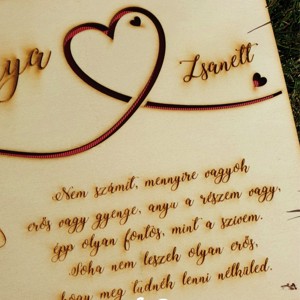 ya
Zsanett
Nem számít, mennyire vagyok
erős vagy gyenge, anyu a részem vagy,
épp olyan fontos, mint a szívem.
Soha nem leszek olyan erős,
hogy meg tudnék lenni nélküled.